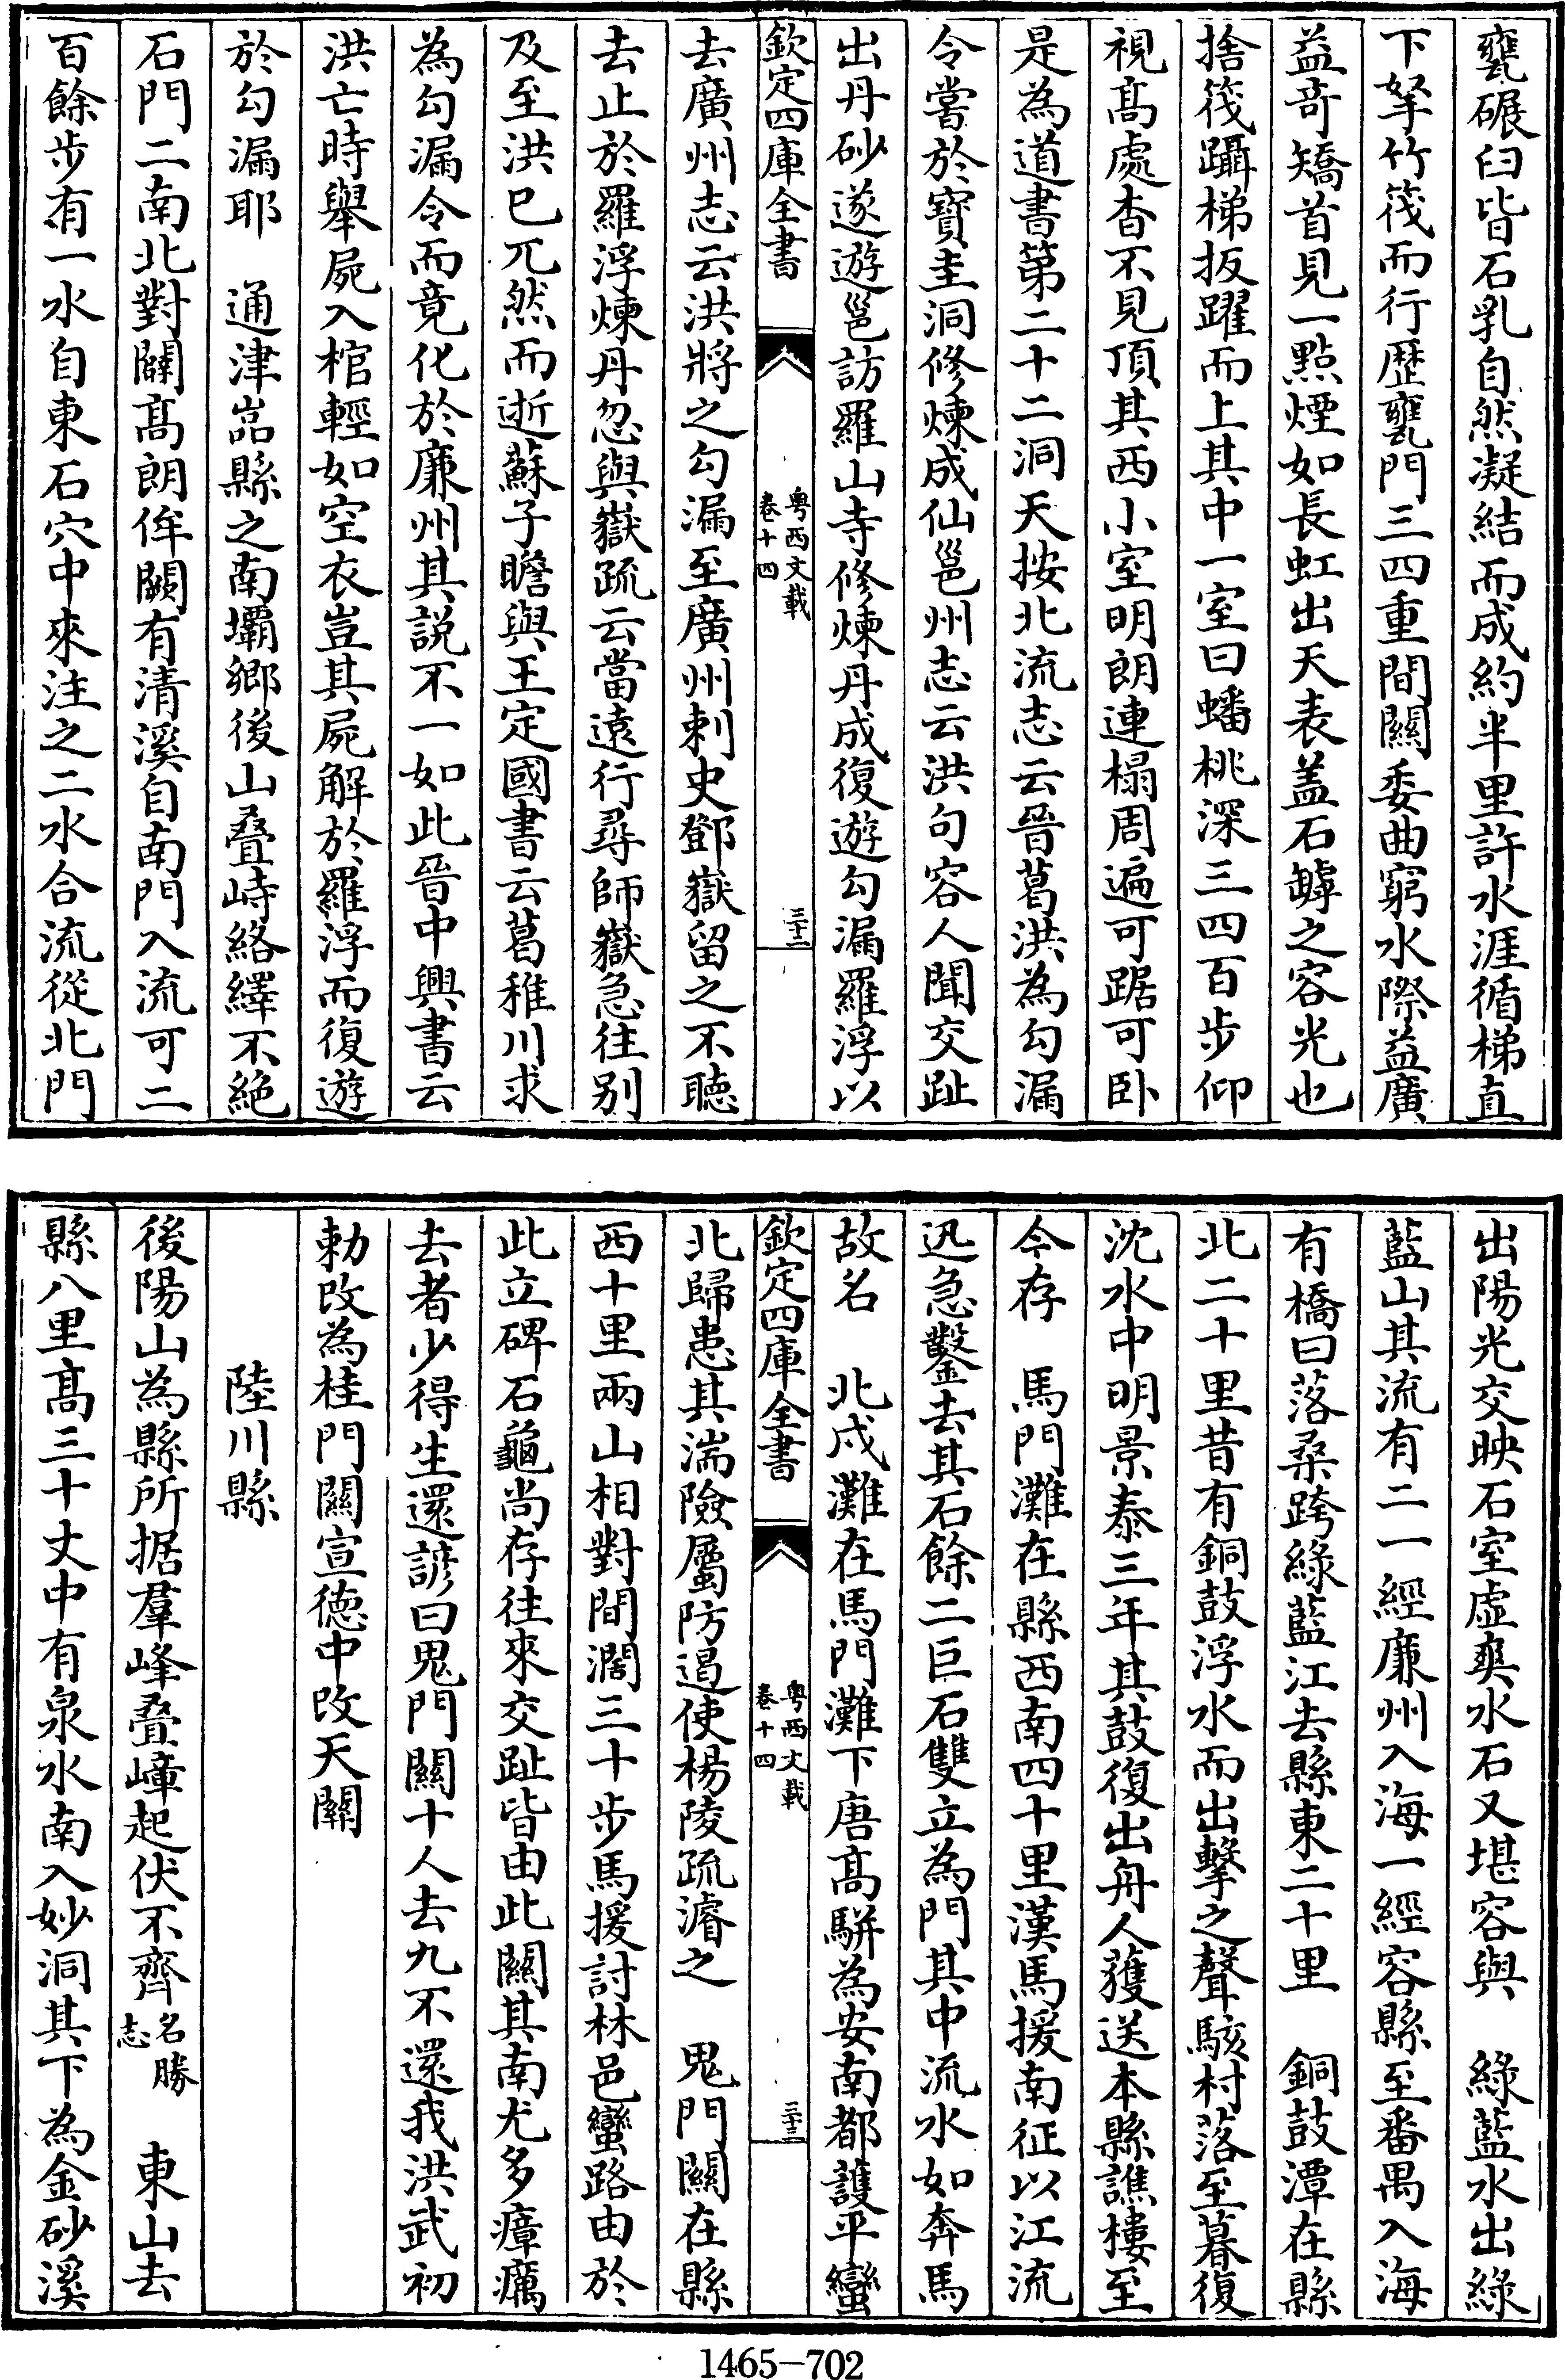 甕碾臼皆石乳自然凝結而成約半里許水涯循梯直
下拏竹筏而行歷甕門三四重間關委曲窮水際益廣
益奇矯首見一點煙如長虹出天表盖石罅之容光也
捨筏躡梯扳躍而上其中一室曰蟠桃深三四百步仰
視髙處杳不見頂其西小室明朗連榻周遍可踞可卧
是為道書第二十二洞天按北流志云晉葛洪為勾漏
令嘗於寳圭洞修煉成仙邕州志云洪句容人聞交趾
出丹砂遂遊邕訪羅山寺修煉丹成復遊勾漏羅浮以
欽定四庫全書
粤西文載
卷十四
三十二
去廣州志云洪將之勾漏至廣州刺史鄧嶽留之不聽
去止於羅浮煉丹忽與嶽疏云當遠行尋師嶽急往别
及至洪已兀然而逝蘇子瞻與王定國書云葛稚川求
為勾漏令而竟化於廉州其説不一如此晉中興書云
洪亡時舉屍入棺輕如空衣豈其屍解於羅浮而復遊
於勾漏耶　通津嵓縣之南壩鄉後山叠峙絡繹不絶
石門二南北對闢髙朗侔闕有清溪自南門入流可二
百餘步有一水自東石穴中來注之二水合流從北門
出陽光交映石室虚爽水石又堪容與　綠藍水出綠
藍山其流有二一經廉州入海一經容縣至番禺入海
有橋曰落桑跨綠藍江去縣東二十里　銅鼓潭在縣
北二十里昔有銅鼓浮水而出擊之聲駭村落至暮復
沈水中明景泰三年其鼓復出舟人獲送本縣譙樓至
今存　馬門灘在縣西南四十里漢馬援南征以江流
迅急鑿去其石餘二巨石雙立為門其中流水如奔馬
故名　北戍灘在馬門灘下唐髙駢為安南都護平蠻
欽定四庫全書
粤西文載
卷十四
三十三
北歸患其湍險屬防遏使楊陵疏濬之　鬼門關在縣
西十里兩山相對間濶三十步馬援討林邑蠻路由於
此立碑石龜尚存往來交趾皆由此關其南尤多瘴癘
去者少得生還諺曰鬼門關十人去九不還我洪武初
勅改為桂門關宣徳中改天關
陸川縣
後陽山為縣所据羣峰叠嶂起伏不齊名勝志　東山去
縣八里髙三十丈中有泉水南入妙洞其下為金砂溪
1465-702